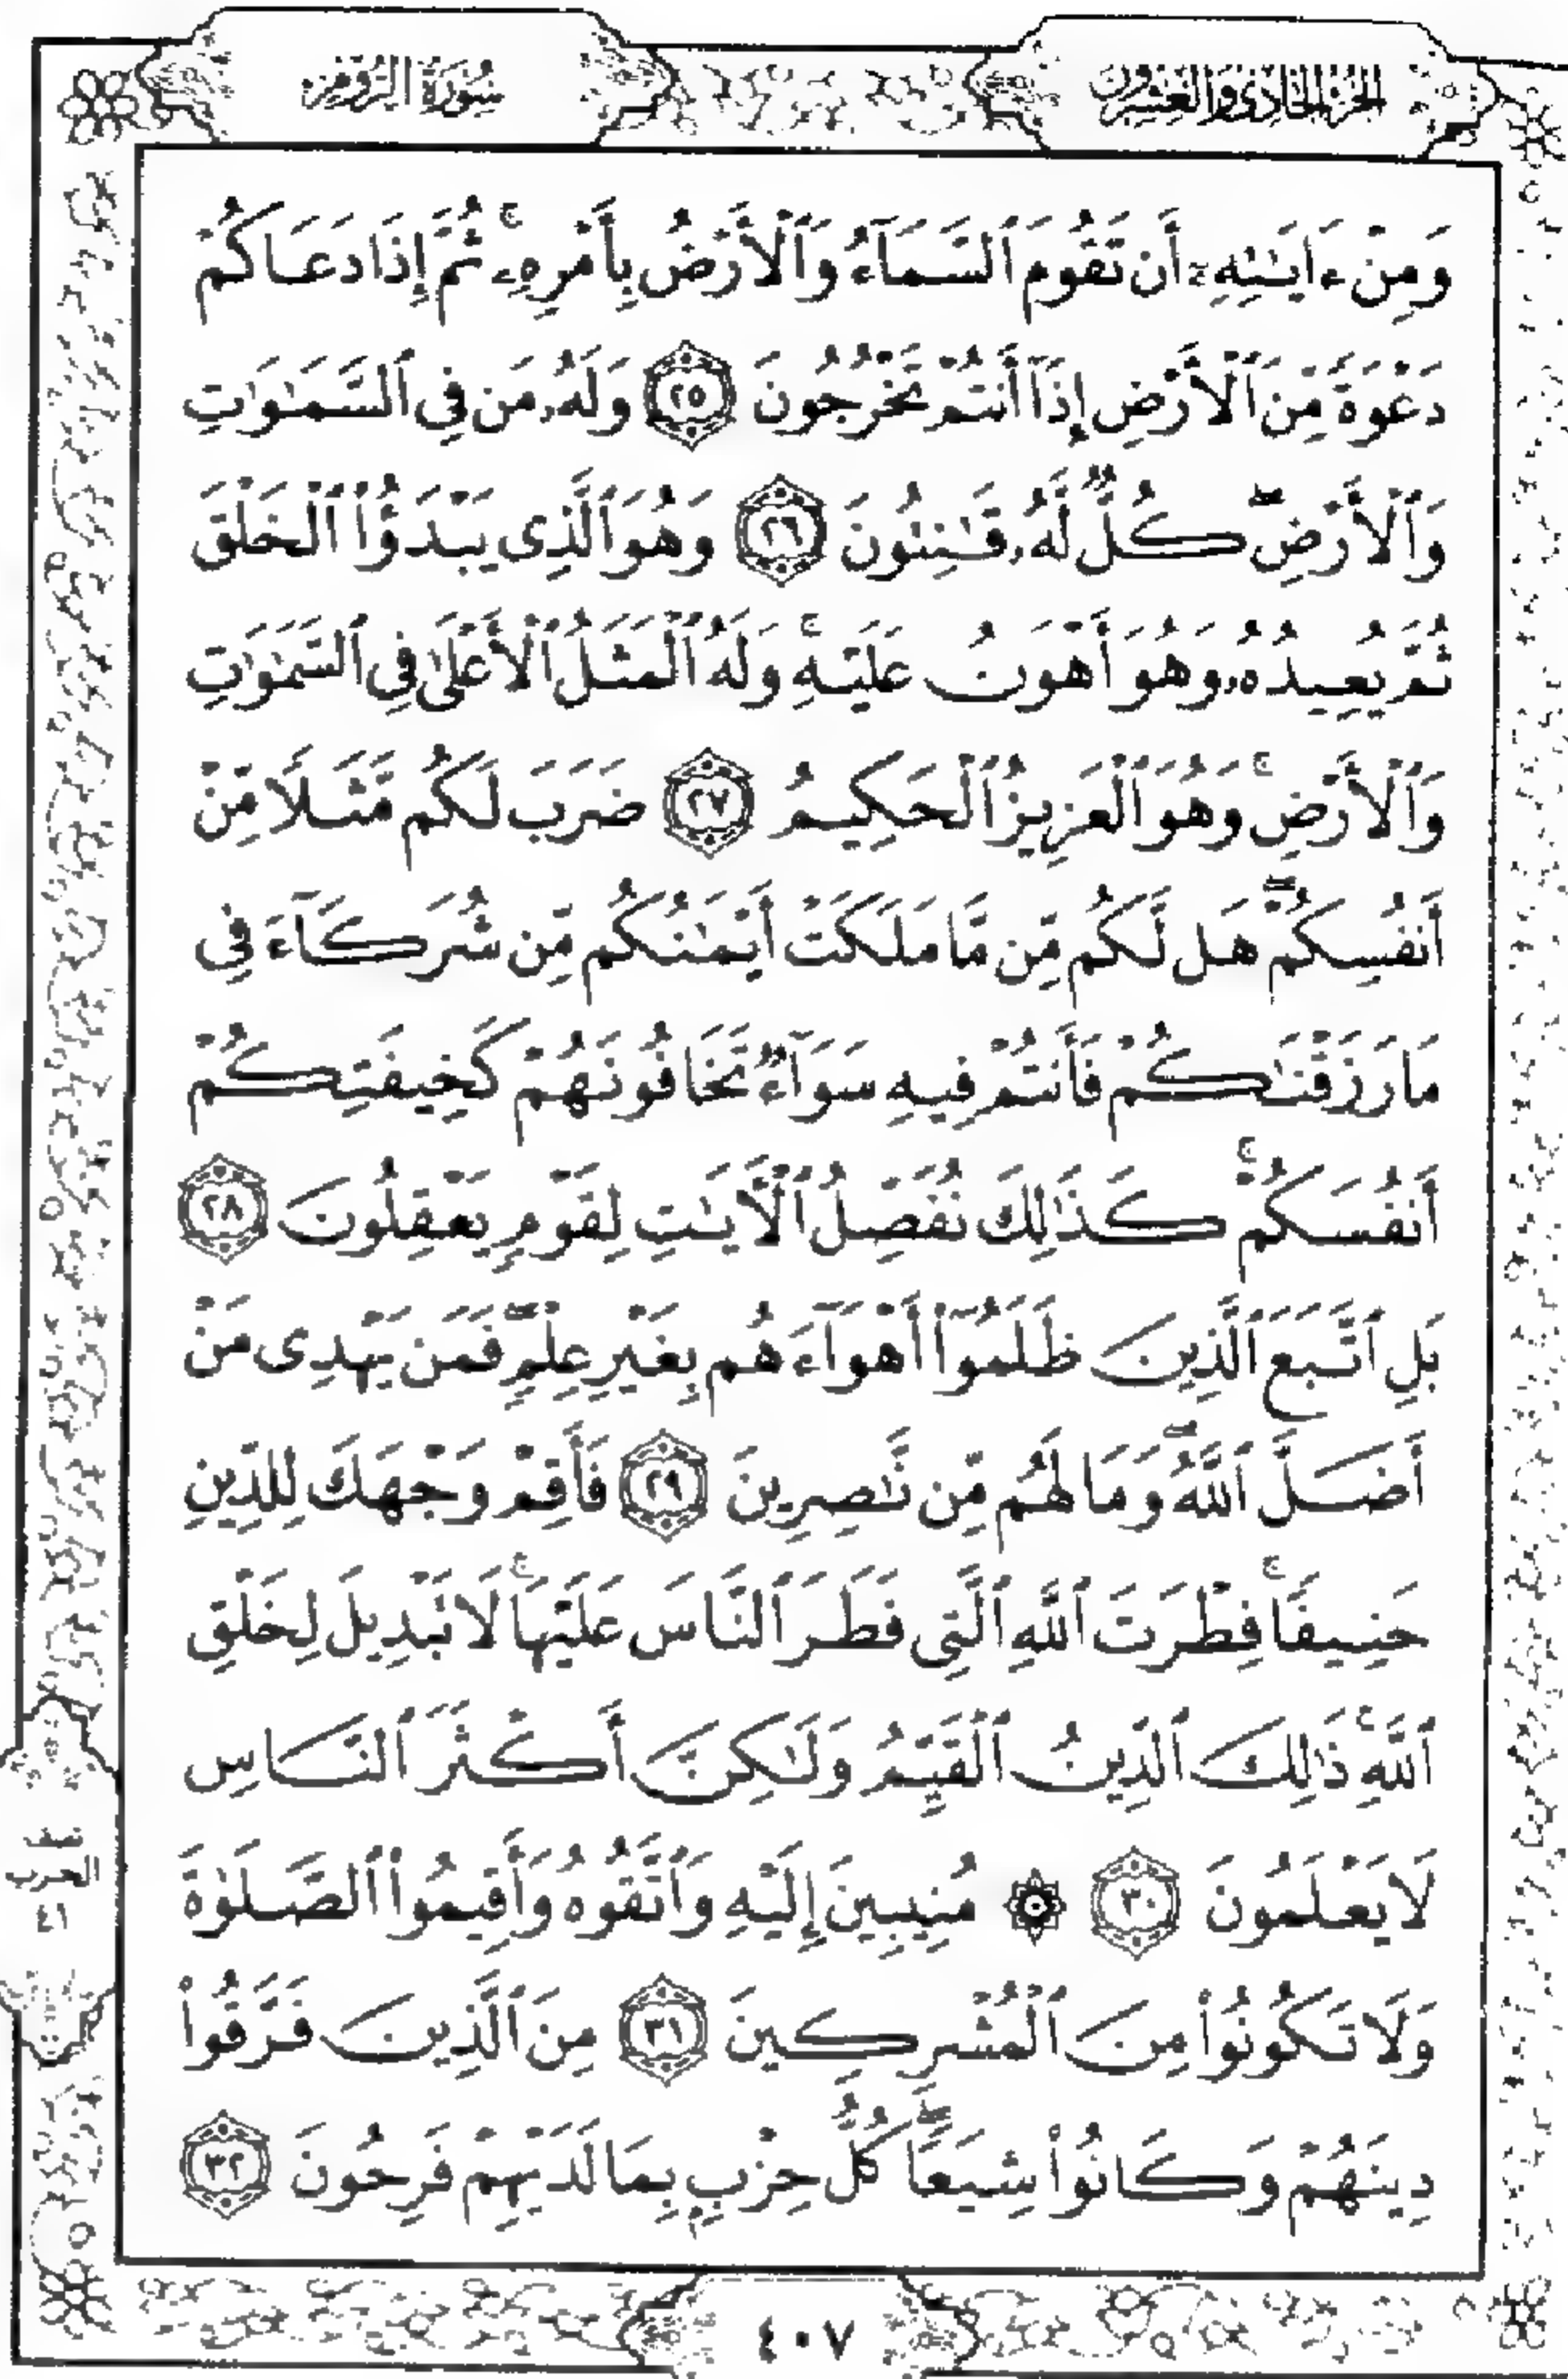 الجزء الحادي والعشرون
سورة الروم
وَمِنْ ءَايَٰتِهِۦٓ أَن تَقُومَ ٱلسَّمَآءُ وَٱلْأَرْضُ بِأَمْرِهِۦ ۚ ثُمَّ إِذَا دَعَاكُمْ
دَعْوَةً مِّنَ ٱلْأَرْضِ إِذَآ أَنتُمْ تَخْرُجُونَ ٢٥ وَلَهُۥ مَن فِى ٱلسَّمَٰوَٰتِ
وَٱلْأَرْضِ ۖ كُلٌّ لَّهُۥ قَٰنِتُونَ ٢٦ وَهُوَ ٱلَّذِى يَبْدَؤُا۟ ٱلْخَلْقَ
ثُمَّ يُعِيدُهُۥ وَهُوَ أَهْوَنُ عَلَيْهِ ۚ وَلَهُ ٱلْمَثَلُ ٱلْأَعْلَىٰ فِى ٱلسَّمَٰوَٰتِ
وَٱلْأَرْضِ ۚ وَهُوَ ٱلْعَزِيزُ ٱلْحَكِيمُ ٢٧ ضَرَبَ لَكُم مَّثَلًا مِّنْ
أَنفُسِكُمْ ۖ هَل لَّكُم مِّن مَّا مَلَكَتْ أَيْمَٰنُكُم مِّن شُرَكَآءَ فِى
مَا رَزَقْنَٰكُمْ فَأَنتُمْ فِيهِ سَوَآءٌ تَخَافُونَهُمْ كَخِيفَتِكُمْ
أَنفُسَكُمْ ۚ كَذَٰلِكَ نُفَصِّلُ ٱلْءَايَٰتِ لِقَوْمٍ يَعْقِلُونَ ٢٨
بَلِ ٱتَّبَعَ ٱلَّذِينَ ظَلَمُوٓا۟ أَهْوَآءَهُم بِغَيْرِ عِلْمٍ ۖ فَمَن يَهْدِى مَنْ
أَضَلَّ ٱللَّهُ ۖ وَمَا لَهُم مِّن نَّٰصِرِينَ ٢٩ فَأَقِمْ وَجْهَكَ لِلدِّينِ
حَنِيفًا ۚ فِطْرَتَ ٱللَّهِ ٱلَّتِى فَطَرَ ٱلنَّاسَ عَلَيْهَا ۚ لَا تَبْدِيلَ لِخَلْقِ
ٱللَّهِ ۚ ذَٰلِكَ ٱلدِّينُ ٱلْقَيِّمُ وَلَٰكِنَّ أَكْثَرَ ٱلنَّاسِ
لَا يَعْلَمُونَ ٣٠ ۞ مُنِيبِينَ إِلَيْهِ وَٱتَّقُوهُ وَأَقِيمُوا۟ ٱلصَّلَوٰةَ
وَلَا تَكُونُوا۟ مِنَ ٱلْمُشْرِكِينَ ٣١ مِنَ ٱلَّذِينَ فَرَّقُوا۟
دِينَهُمْ وَكَانُوا۟ شِيَعًا ۖ كُلُّ حِزْبٍۭ بِمَا لَدَيْهِمْ فَرِحُونَ ٣٢
الحزب
٤١
٤٠٧